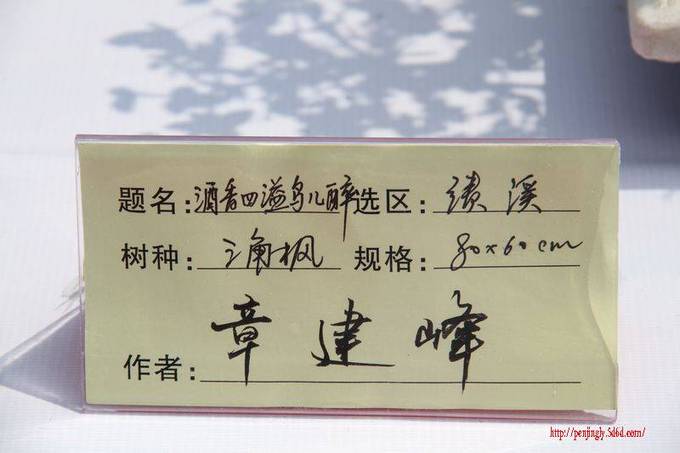 题名:酒香四溢鸟儿醉 选区:绩溪
树种:三角枫 规格:80x60cm
作者:章建峰
http://penjingly.5d6d.com/